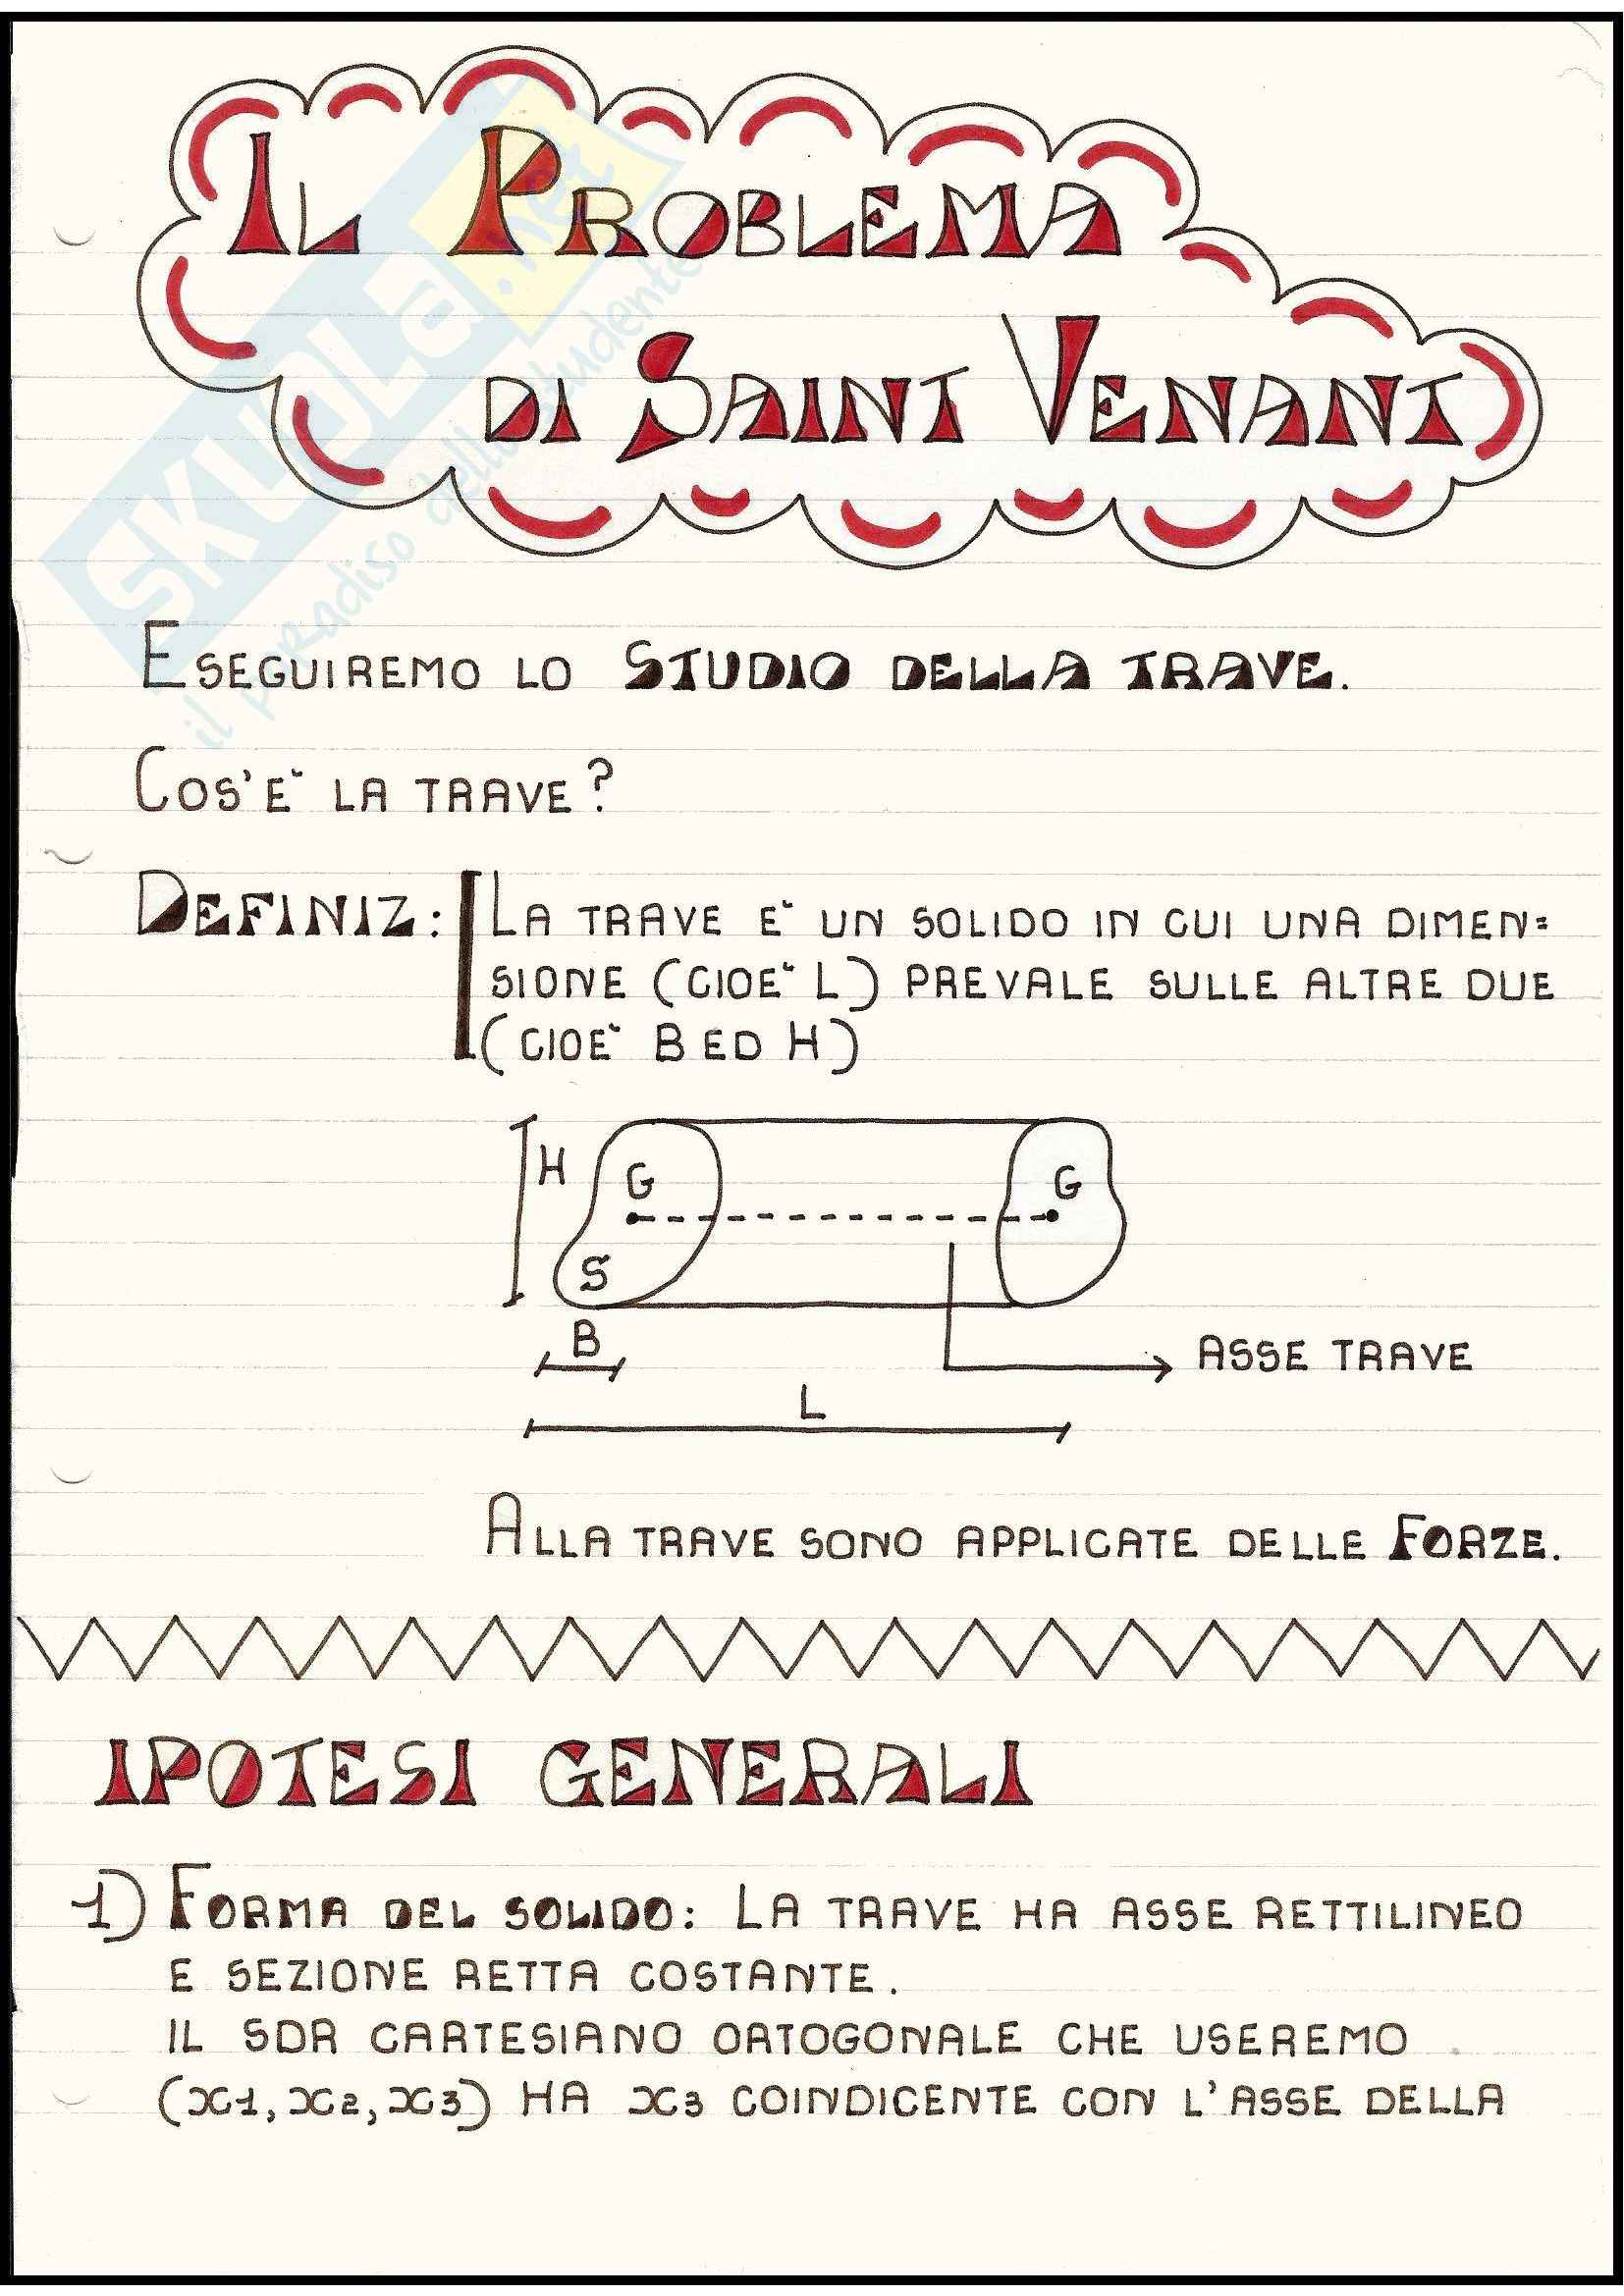 IL PROBLEMA
DI SAINT VENANT
SKUOLA.net
il paradiso dello studente
ESEGUIREMO LO STUDIO DELLA TRAVE.
COS'E` LA TRAVE?
DEFINIZ: LA TRAVE E` UN SOLIDO IN CUI UNA DIMEN=
SIONE (CIOE` L) PREVALE SULLE ALTRE DUE
(CIOE` B ED H)
H
G
G
S
B
ASSE TRAVE
L
ALLA TRAVE SONO APPLICATE DELLE FORZE.
IPOTESI GENERALI
1) FORMA DEL SOLIDO: LA TRAVE HA ASSE RETTILINEO
E SEZIONE RETTA COSTANTE.
IL SDR CARTESIANO ORTOGONALE CHE USEREMO
(x1, x2, x3) HA x3 COINDICENTE CON L'ASSE DELLA